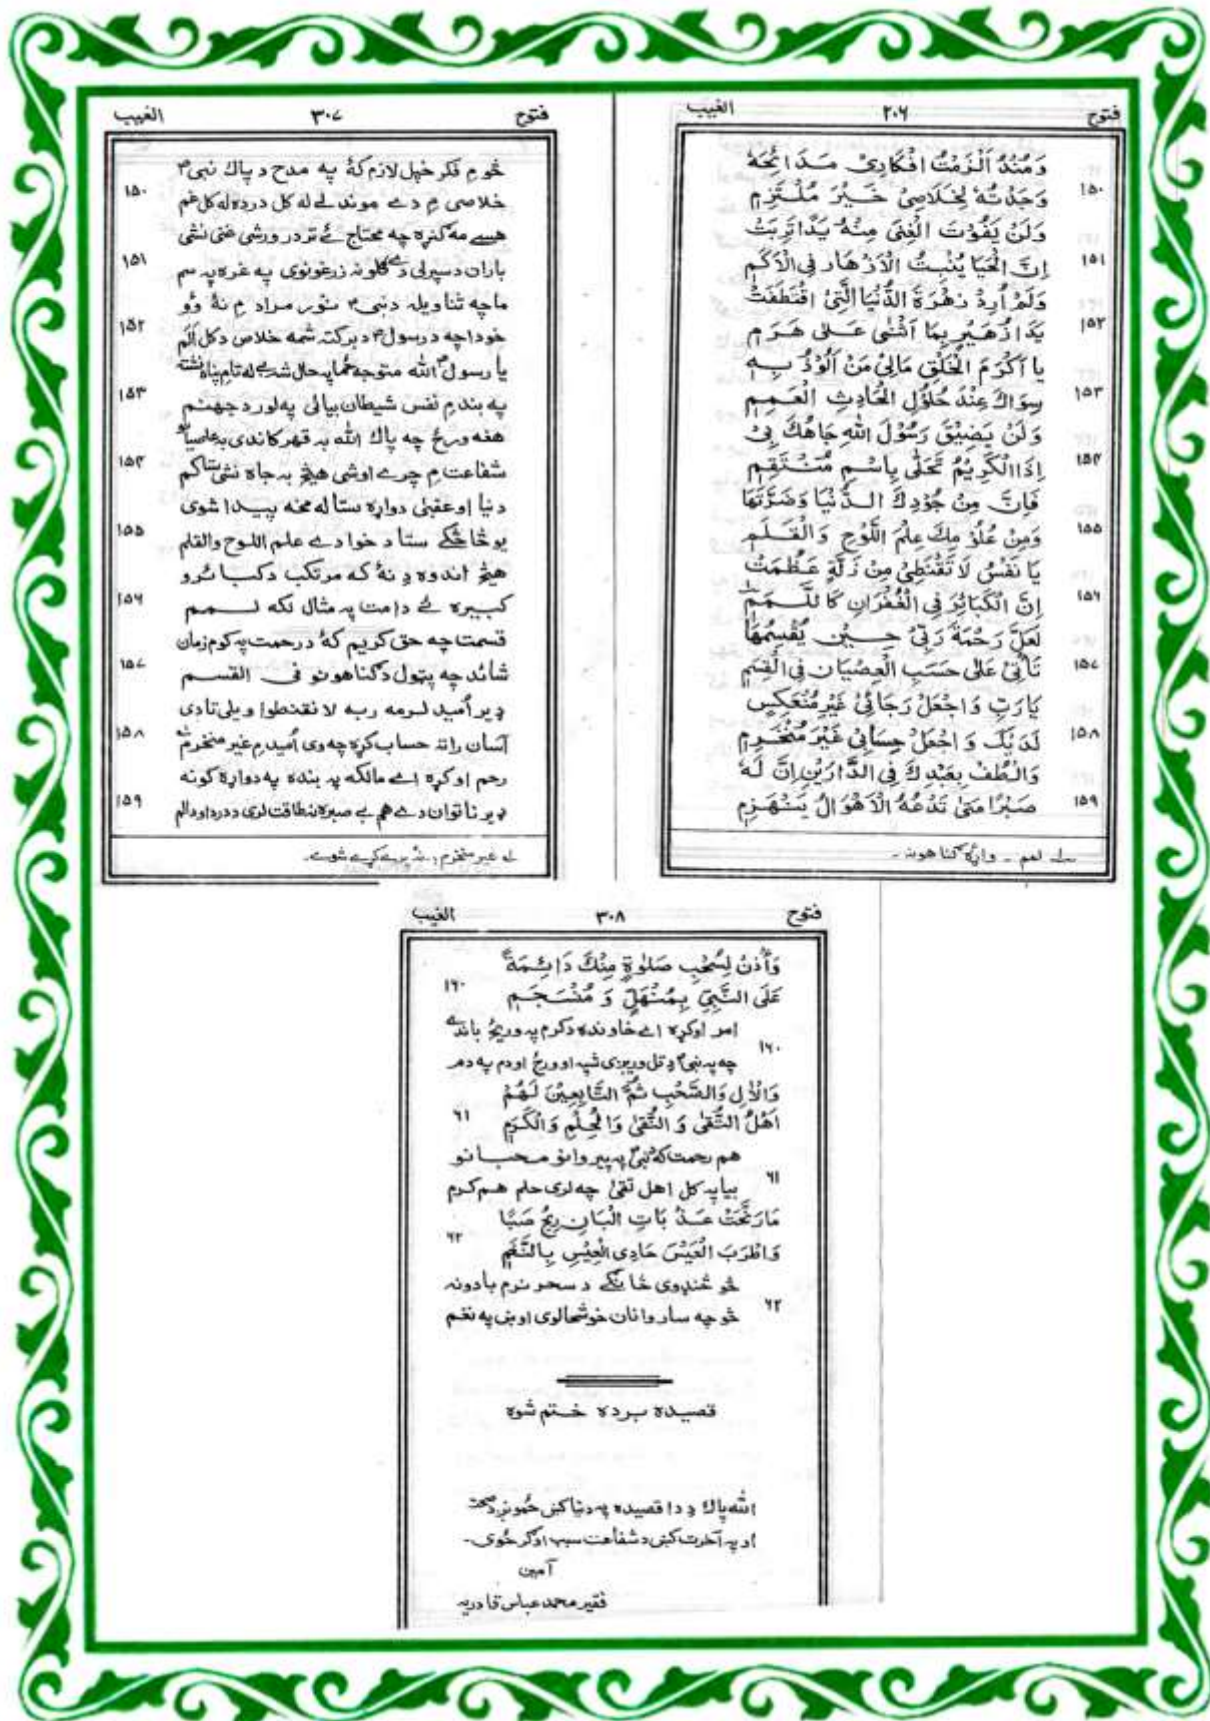 فتوح ٢٠٦ الغيب
وَمُنْذُ اَلْزَمْتُ اَفْكَارِىْ مَدَائِحَهٗ
وَجَدْتُهٗ لِخَلَاصِىْ خَيْرَ مُلْتَزِمِ ١٥٠
وَلَنْ يَفُوْتَ الْغِنٰى مِنْهُ يَدًا تَرِبَتْ
اِنَّ الْحَيَا يُنْبِتُ الْاَزْهَارَ فِى الْاَكَمِ ١٥١
وَلَمْ اُرِدْ زَهْرَةَ الدُّنْيَا الَّتِىْ اقْتَطَفَتْ
يَدَا زُهَيْرٍ بِمَا اَثْنٰى عَلٰى هَرَمٍ ١٥٢
يَا اَكْرَمَ الْخَلْقِ مَالِىْ مَنْ اَلُوْذُ بِهٖ
سِوَاكَ عِنْدَ حُلُوْلِ الْحَادِثِ الْعَمِمِ ١٥٣
وَلَنْ يَضِيْقَ رَسُوْلَ اللّٰهِ جَاهُكَ بِىْ
اِذَا الْكَرِيْمُ تَحَلّٰى بِاسْمِ مُنْتَقِمٖ ١٥٤
فَاِنَّ مِنْ جُوْدِكَ الدُّنْيَا وَضَرَّتَهَا
وَمِنْ عُلُوْمِكَ عِلْمَ اللَّوْحِ وَالْقَلَمِ ١٥٥
يَا نَفْسُ لَا تَقْنَطِىْ مِنْ زَلَّةٍ عَظُمَتْ
اِنَّ الْكَبَائِرَ فِى الْغُفْرَانِ كَاللَّمَمِ ١٥٦
لَعَلَّ رَحْمَةَ رَبِّىْ حِيْنَ يَقْسِمُهَا
تَأْتِىْ عَلٰى حَسَبِ الْعِصْيَانِ فِى الْقِسَمِ ١٥٧
يَارَبِّ وَاجْعَلْ رَجَائِىْ غَيْرَ مُنْعَكِسٍ
لَدَيْكَ وَاجْعَلْ حِسَابِىْ غَيْرَ مُنْخَرِمِ ١٥٨
وَالْطُفْ بِعَبْدِكَ فِى الدَّارَيْنِ اِنَّ لَهٗ
صَبْرًا مَتٰى تَدْعُهُ الْاَهْوَالُ يَنْهَزِمِ ١٥٩
لمم ـ واړه ګناهونه ـ
فتوح ٣٠٧ الغيب
څوم فكر خپل لازم كۀ په مدح د پاك نبى
خلاصى م دے موندلے له كل درده له كل غم ١٥٠
هسے مه ګنړه چه محتاج ئے تر در ورشى غنى نشى
باران د سپرلى دے ګلونه زرغونوى په غره په سم ١٥١
ما چه ثنا ويله د نبى نور مراد م نۀ وو
خو دا چه د رسول د بركته شمه خلاص د كل الم ١٥٢
يا رسول الله متوجه په حال شه بے له تا م پناه نشته
په بند م نفس شيطان بيائى په لور د جهنم ١٥٣
هغه ورځ چه پاك الله به قهر كاندى به
شفاعت م چرے اوشى هيڅ به جاه نشى ستا كم ١٥٤
دنيا او عقبىٰ دواړه ستا له مخه پيدا شوى
يو څاڅكے ستا د خوا دے علم اللوح والقلم ١٥٥
هيڅ اندوه د نۀ كه مرتكب د كبائرو
كبيره ئے د رحمت په مثال لكه لمم ١٥٦
قسمت چه حق كريم كۀ د رحمت په كوم زمان
شائد چه په ټول د ګناهونو فى القسم ١٥٧
ډير اُميد لرمه ربه لا تقنطوا ويلى تا دى
آسان راته حساب كړه چه وى اُميد م غير منخرم ١٥٨
رحم اوكړه اے مالكه په بنده په دواړه كونه
ډير ناتوان دے هم بے صبره نه طاقت لرى د درد او د الم ١٥٩
غير منخرم
فتوح ٣٠٨ الغيب
وَأْذَنْ لِسُحْبِ صَلٰوةٍ مِنْكَ دَائِمَةً
عَلَى النَّبِىِّ بِمُنْهَلٍّ وَ مُنْسَجَمٖ ١٦٠
امر اوكړه اے خاونده د كرم په وريځ باندے
چه په نبى د تل وريږى شپه او ورځ او دم په دم ١٦٠
وَالْاٰلِ وَالصَّحْبِ ثُمَّ التَّابِعِيْنَ لَهُمْ
اَهْلُ التُّقٰى وَ النُّقٰى وَالْحِلْمِ وَالْكَرَمِ ٦١
هم رحمت كه نبى په پيروانو محبانو
بيا په كل اهل تقىٰ چه لرى حلم هم كرم ٦١
مَارَنَّحَتْ عَذَبَاتِ الْبَانِ رِيْحُ صَبًا
وَاَطْرَبَ الْعَيْسَ حَادِى الْعِيْسِ بِالنَّغَمِ ٦٢
څو څنډوى څانګے د سحر نرم بادونه
څو چه ساروانان خوشحالوى اوښى په نغم ٦٢
قصيده برده ختم شوه
الله پاك د دا قصيده په دنيا كښى خمونږ د صحت
او په آخرت كښى د شفاعت سبب اوګرځوى ـ
آمين
فقير محمد عباس قادريه